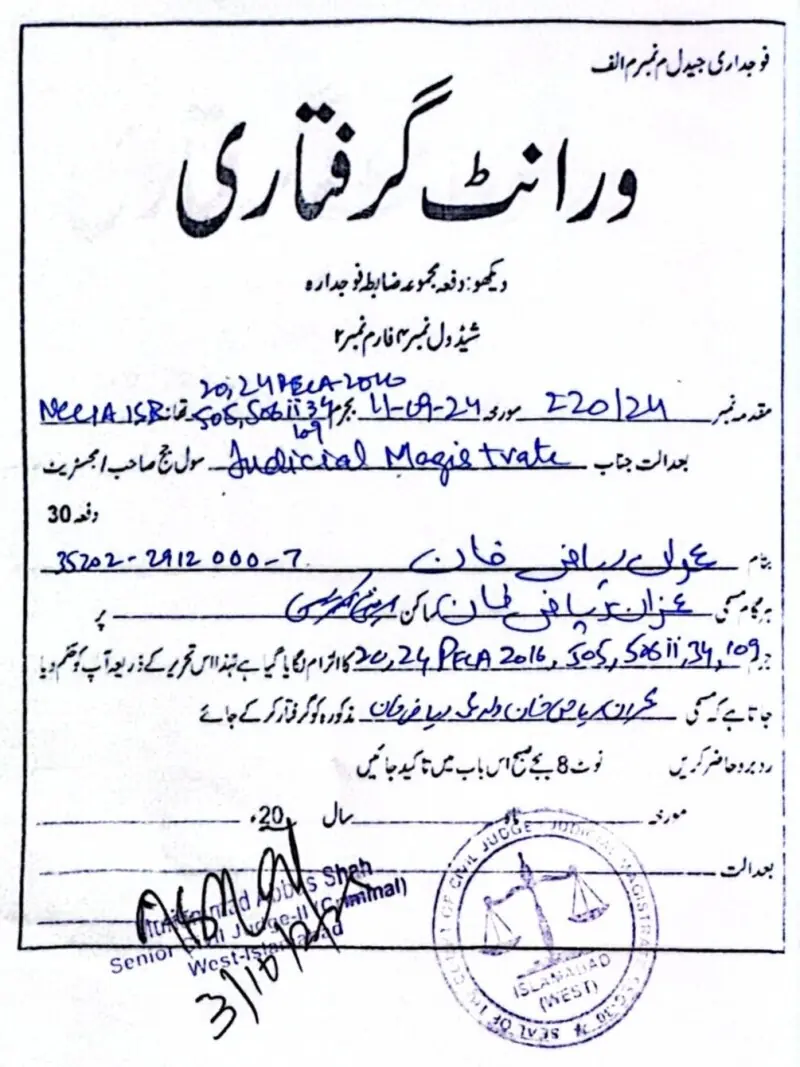 فوجداری جیدل م نمبر م الف
وارنٹ گرفتاری
دیکھو: دفعہ مجموعہ ضابطہ فوجدارہ
شیڈول نمبر ۴ فارم نمبر ۲
20, 24 PECA-2016
مقدمہ نمبر 220/24 مورخہ 11-09-24 بجرم 505, 506ii 34 تھانہ NCCIA ISB
109
بعدالت جناب Judicial Magistrate سول جج صاحب
دفعہ 30
بنام ریاض خان 35202-2912000-7
ریاض خان ساکن پر
جرم 20, 24 PECA 2016, 505, 506ii, 34, 109 کا الزام لگایا گیا ہے لہٰذا اس تحریر کے ذریعہ آپ کو حکم دیا
جاتا ہے کہ مسمی عمران ریاض خان ولد ریاض خان مذکورہ کو گرفتار کر کے جائے
روبرو حاضر کریں نوٹ 8 بجے صبح اس باب میں تاکید جائیں
مورخہ سال 20ء
بعدالت
Muhammad Abbas Shah
Senior Civil Judge-II (Criminal)
West-Islamabad
3/10/24
SEAL OF THE COURT OF CIVIL JUDGE JUDICIAL MAGISTRATE S.30
ISLAMABAD
(WEST)